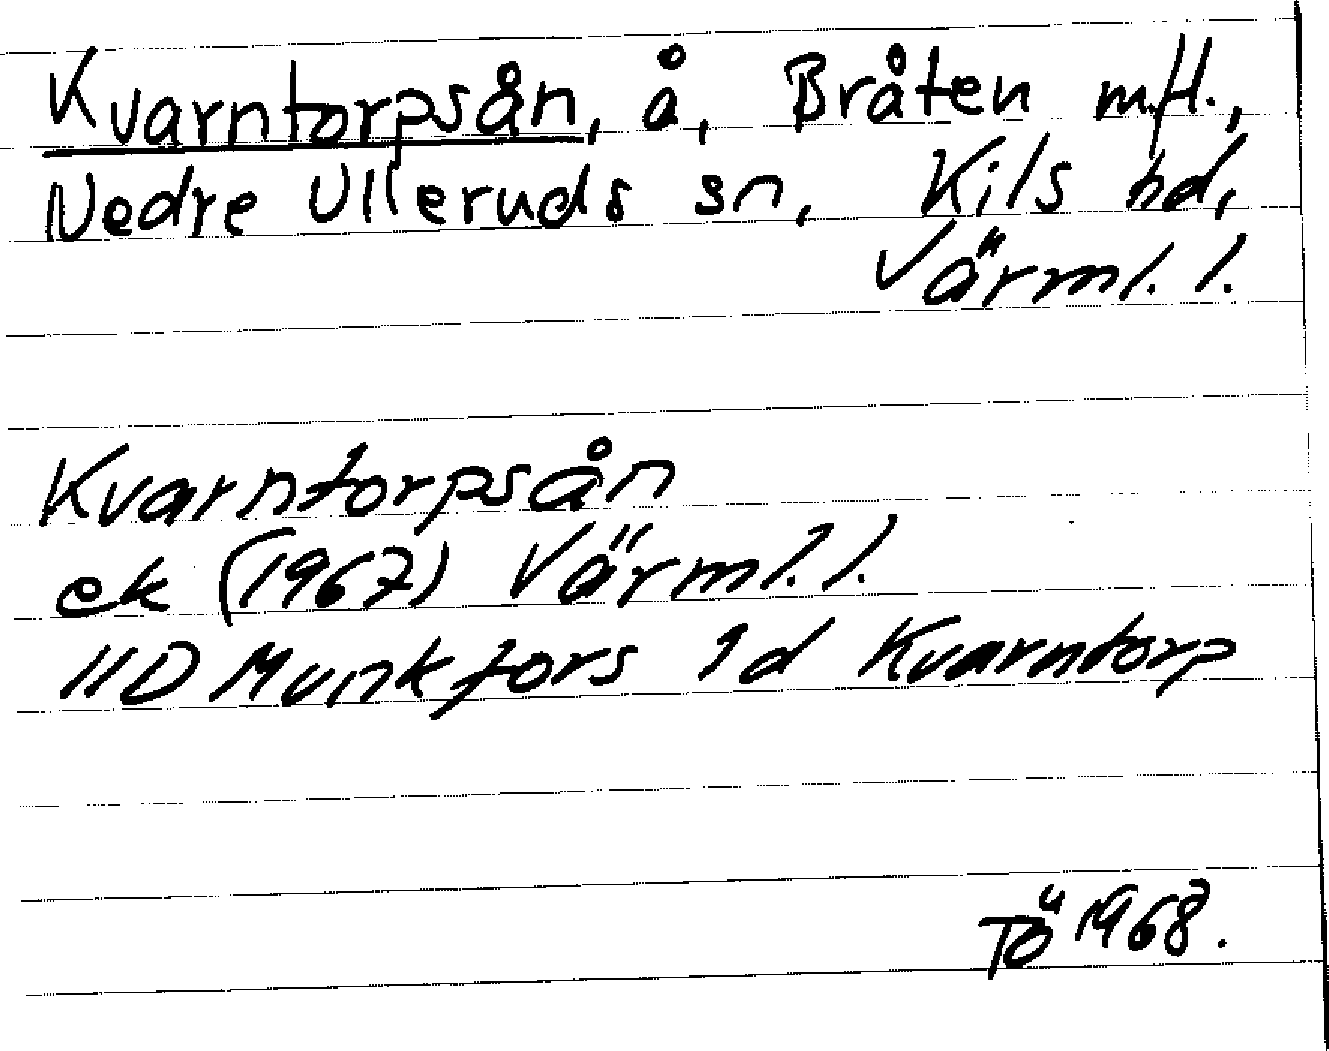 Kvarntorpsån, å, Bråten m.fl.,
Nedre Ulleruds sn, Kils hd,
Värml. l.
Kvarntorpsån
ek (1967) Värml. l.
11D Munkfors 1d Kvarntorp
TÖ 1968.